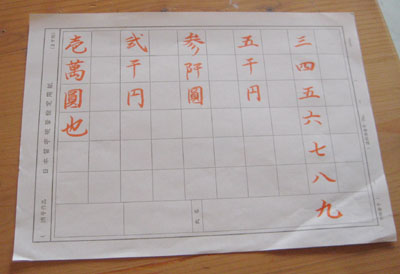 三四五六七八九
五千円
参阡圓
弐千円
壱萬圓也